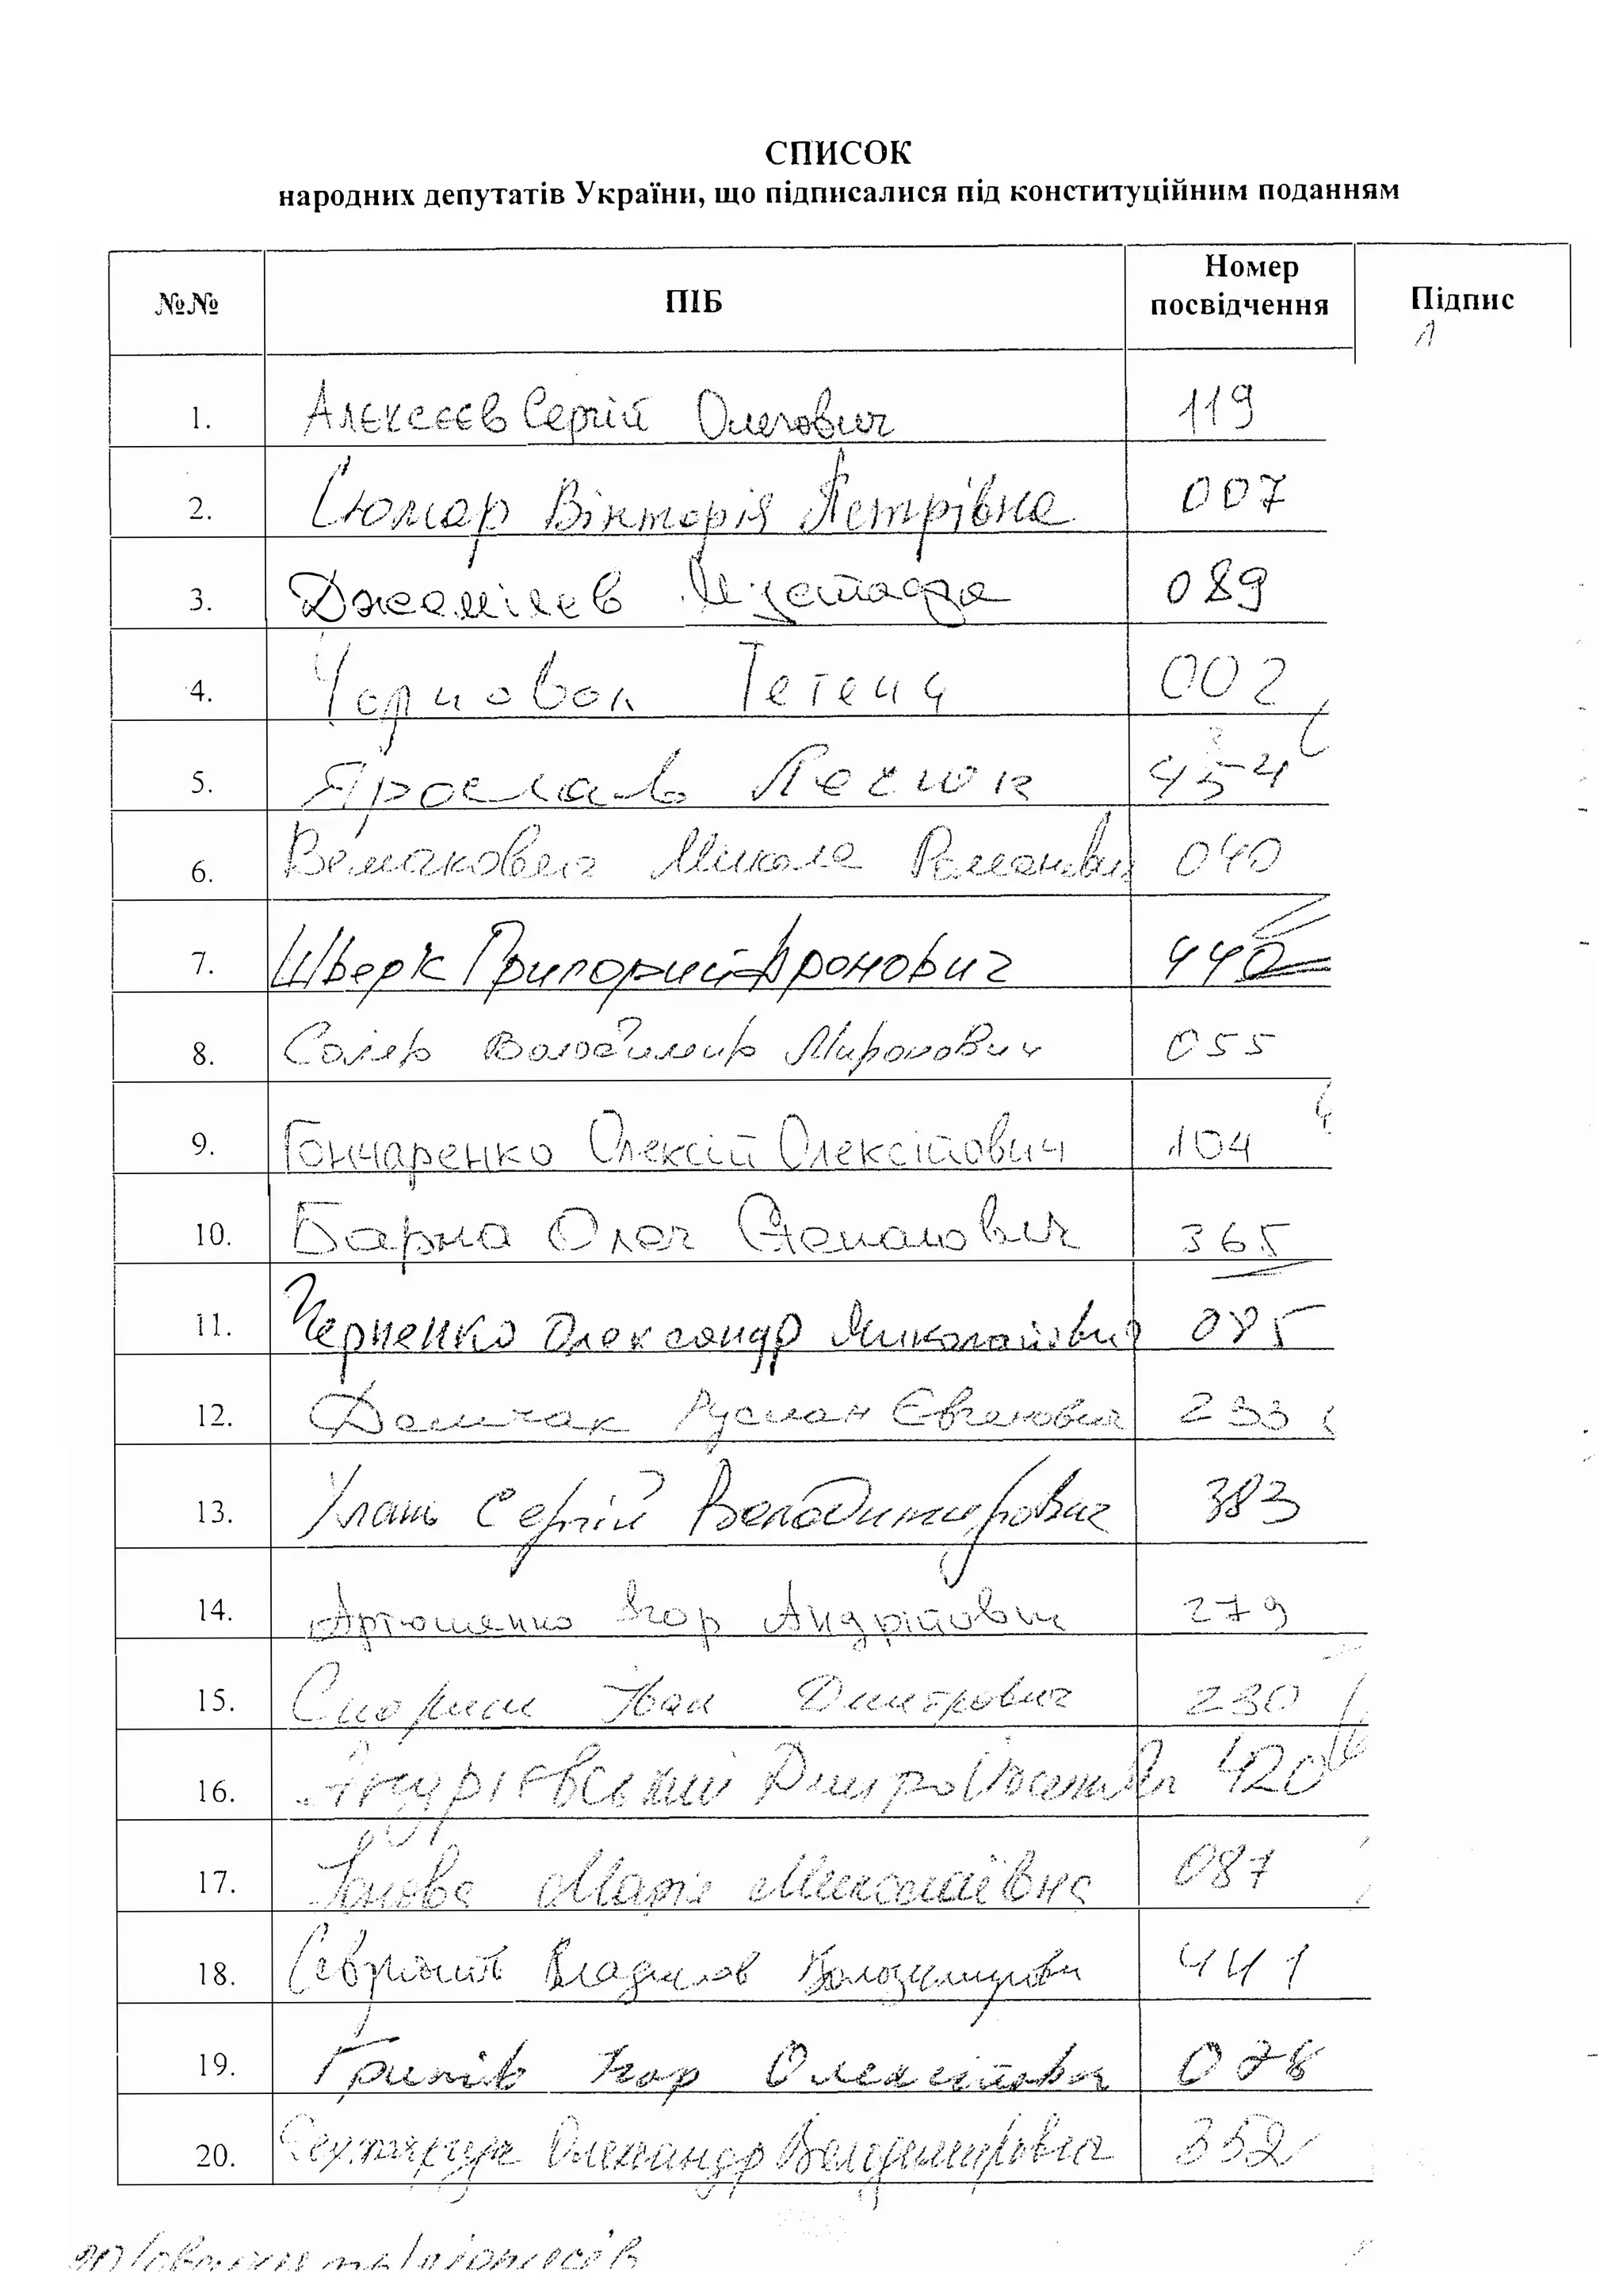 СПИСОК
народних депутатів України, що підписалися під конституційним поданням
№№ ПІБ Номер посвідчення Підпис
1. Алєксєєв Сергій Олегович 119
2. Сюмар Вікторія Петрівна 007
3. Джемілєв Мустафа 089
4. Чорновол Тетяна 002
5. Ярослав 454
6. Величкович Микола Романович 040
7. Шверк Григорий Аронович 440
8. Соляр Володимир Миронович 055
9. Гончаренко Олексій Олексійович 104
10. Барна Олег Степанович 365
11. Черненко Олександр Миколайович 085
12. Демчак Руслан Євгенович 233
13. Улан Сергій Володимирович 383
14. Артюшенко Ігор Андрійович 279
15. Спориш Іван Дмитрович 230
16. Дмитро 420
17. Іонова Марія Миколаївна 087
18. Севрюков Володимирович 441
19. Гринів Ігор Олексійович 078
20. Олександр Володимирович 352